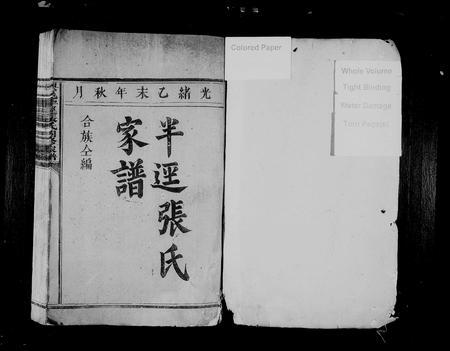 光緒乙未年秋月
半逕張氏
家譜
合族仝編
Colored Paper
Whole Volume
Tight Binding
Water Damage
Torn Page(s)